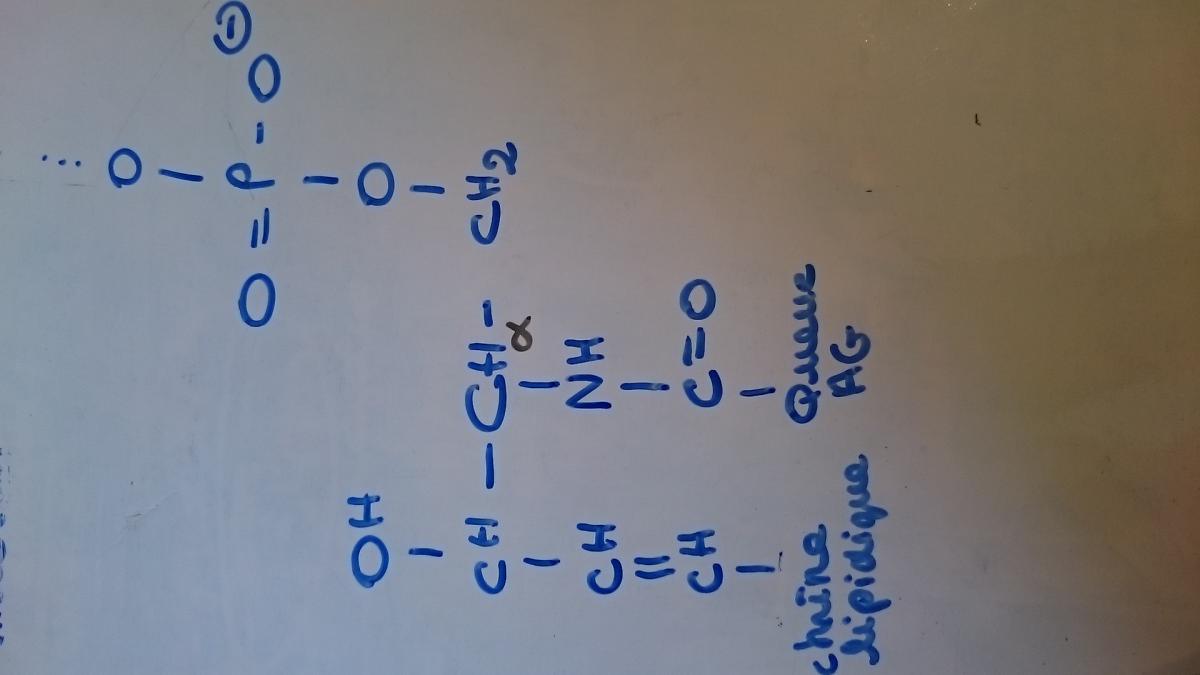 ...
O
O = P - O ⊖
OH O
CH — CH - CH2
α
CH NH
CH C=O
chaîne Queue
lipidique AG